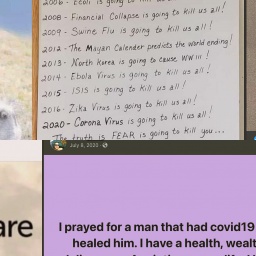 2006 - Ecoli is going to kill us all!
2008 - Financial Collapse is going to kill us all!
2009 - Swine Flu is going to kill us all!
2012 - The Mayan Calender predicts the world ending!
2013 - North Korea is going to cause WW III!
2014 - Ebola Virus is going to kill us all!
2015 - ISIS is going to kill us all!
2016 - Zika Virus is going to kill us all!
2020 - Corona Virus is going to kill us all!
The truth is FEAR is going to kill you...
July 8, 2020
are
I prayed for a man that had covid19
healed him. I have a health, wealt